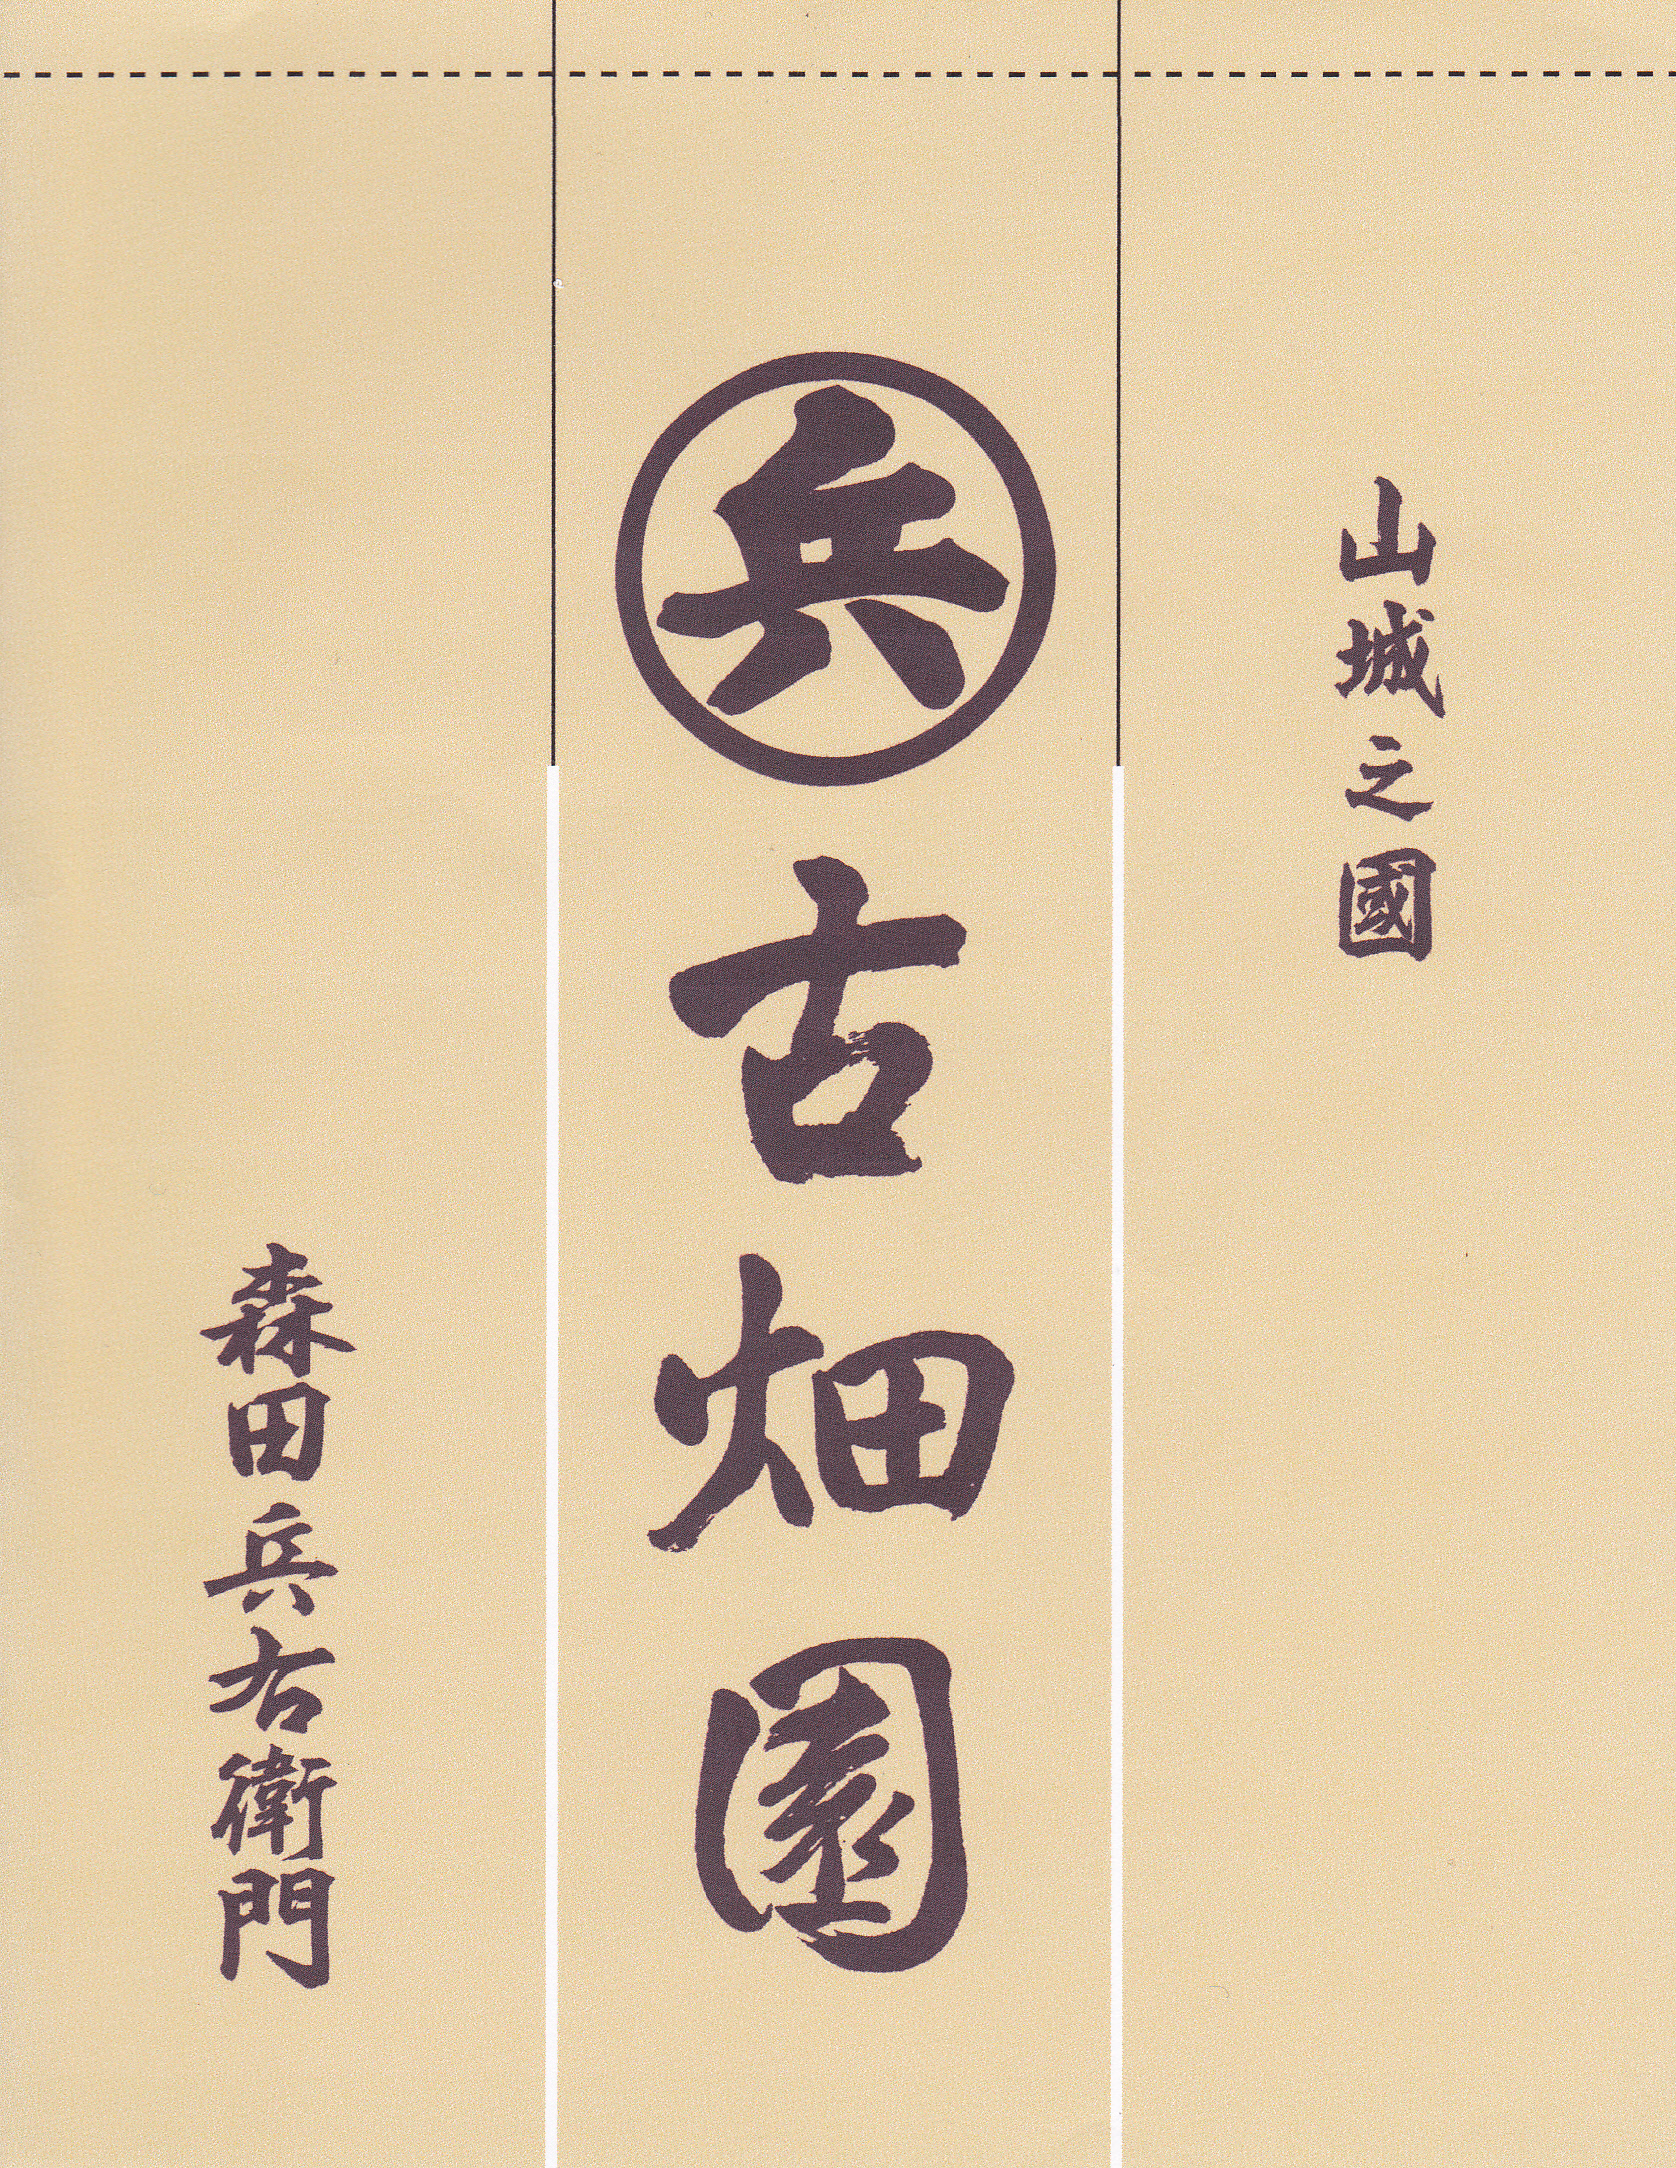 山城之國
兵
古畑園
森田兵右衛門